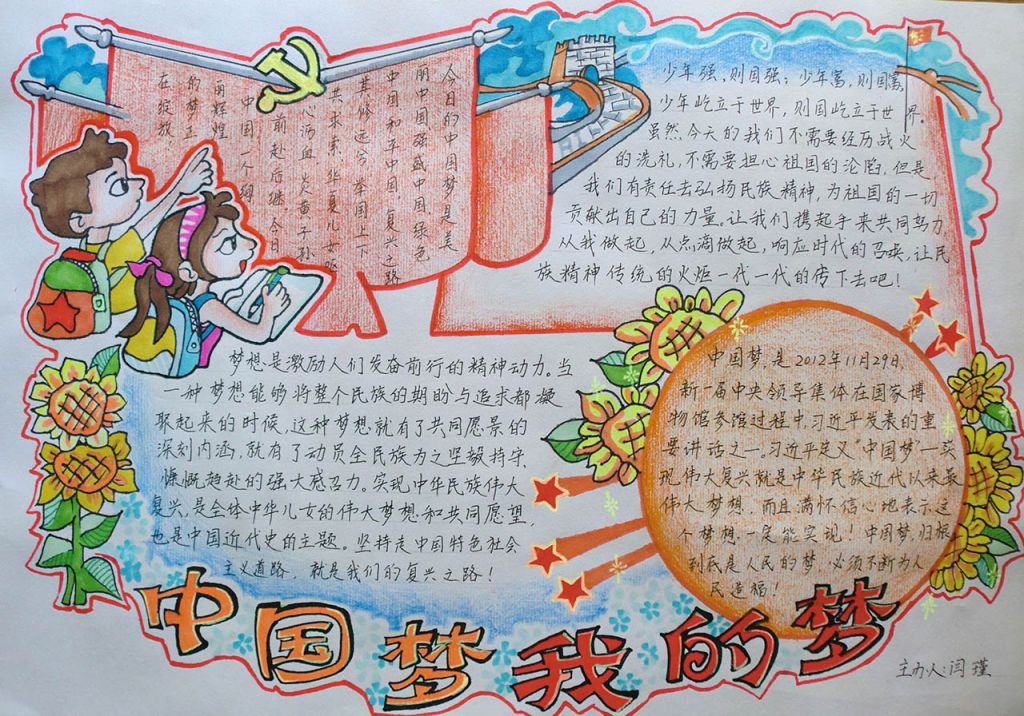 今日的中国梦是美
丽中国强盛中国绿色
中国和平中国。复兴之路
其修远兮,举国上下
共求索。华夏儿女呕
心沥血,炎黄子孙
前赴后继。今日
中国一个绚
丽辉煌
的梦正
在绽放
少年强,则国强;少年富,则国富,
少年屹立于世界,则国屹立于世界。
虽然今天的我们不需要经历战火
的洗礼,不需要担心祖国的沦陷,但是
我们有责任去弘扬民族精神,为祖国的一切
贡献出自己的力量。让我们携起手来共同努力,
从我做起,从点滴做起,响应时代的召唤,让民
族精神传统的火炬一代一代的传下去吧!
梦想是激励人们发奋前行的精神动力。当
一种梦想能够将整个民族的期盼与追求都凝
聚起来的时候,这种梦想就有了共同愿景的
深刻内涵,就有了动员全民族为之坚毅持守、
慷慨趋赴的强大感召力。实现中华民族伟大
复兴,是全体中华儿女的伟大梦想和共同愿望,
也是中国近代史的主题。坚持走中国特色社会
主义道路,就是我们的复兴之路!
中国梦,是2012年11月29日,
新一届中央领导集体在国家博
物馆参观过程中,习近平发表的重
要讲话之一。习近平定义“中国梦”—实
现伟大复兴就是中华民族近代以来最
伟大梦想,而且满怀信心地表示这
个梦想一定能实现!中国梦归根
到底是人民的梦,必须不断为人
民造福!
中国梦我的梦
主办人:闫瑾